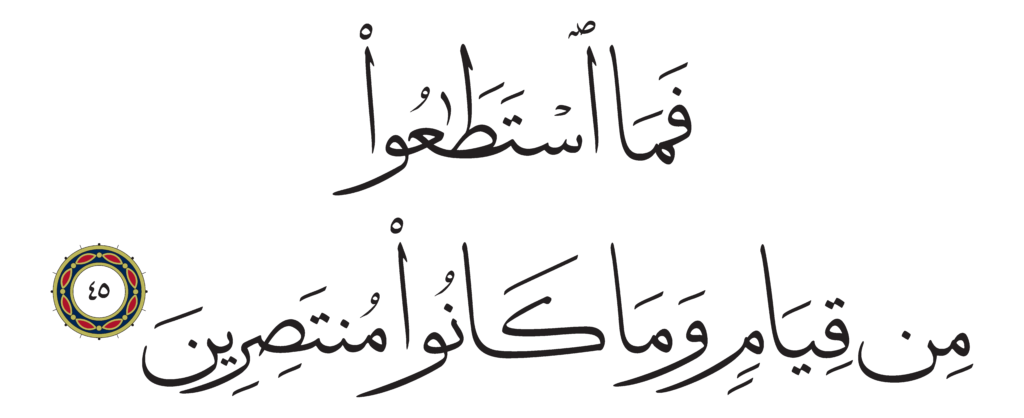 فَمَا ٱسْتَطَٰعُوا۟
مِن قِيَامٍۢ وَمَا كَانُوا۟ مُنتَصِرِينَ ٤٥